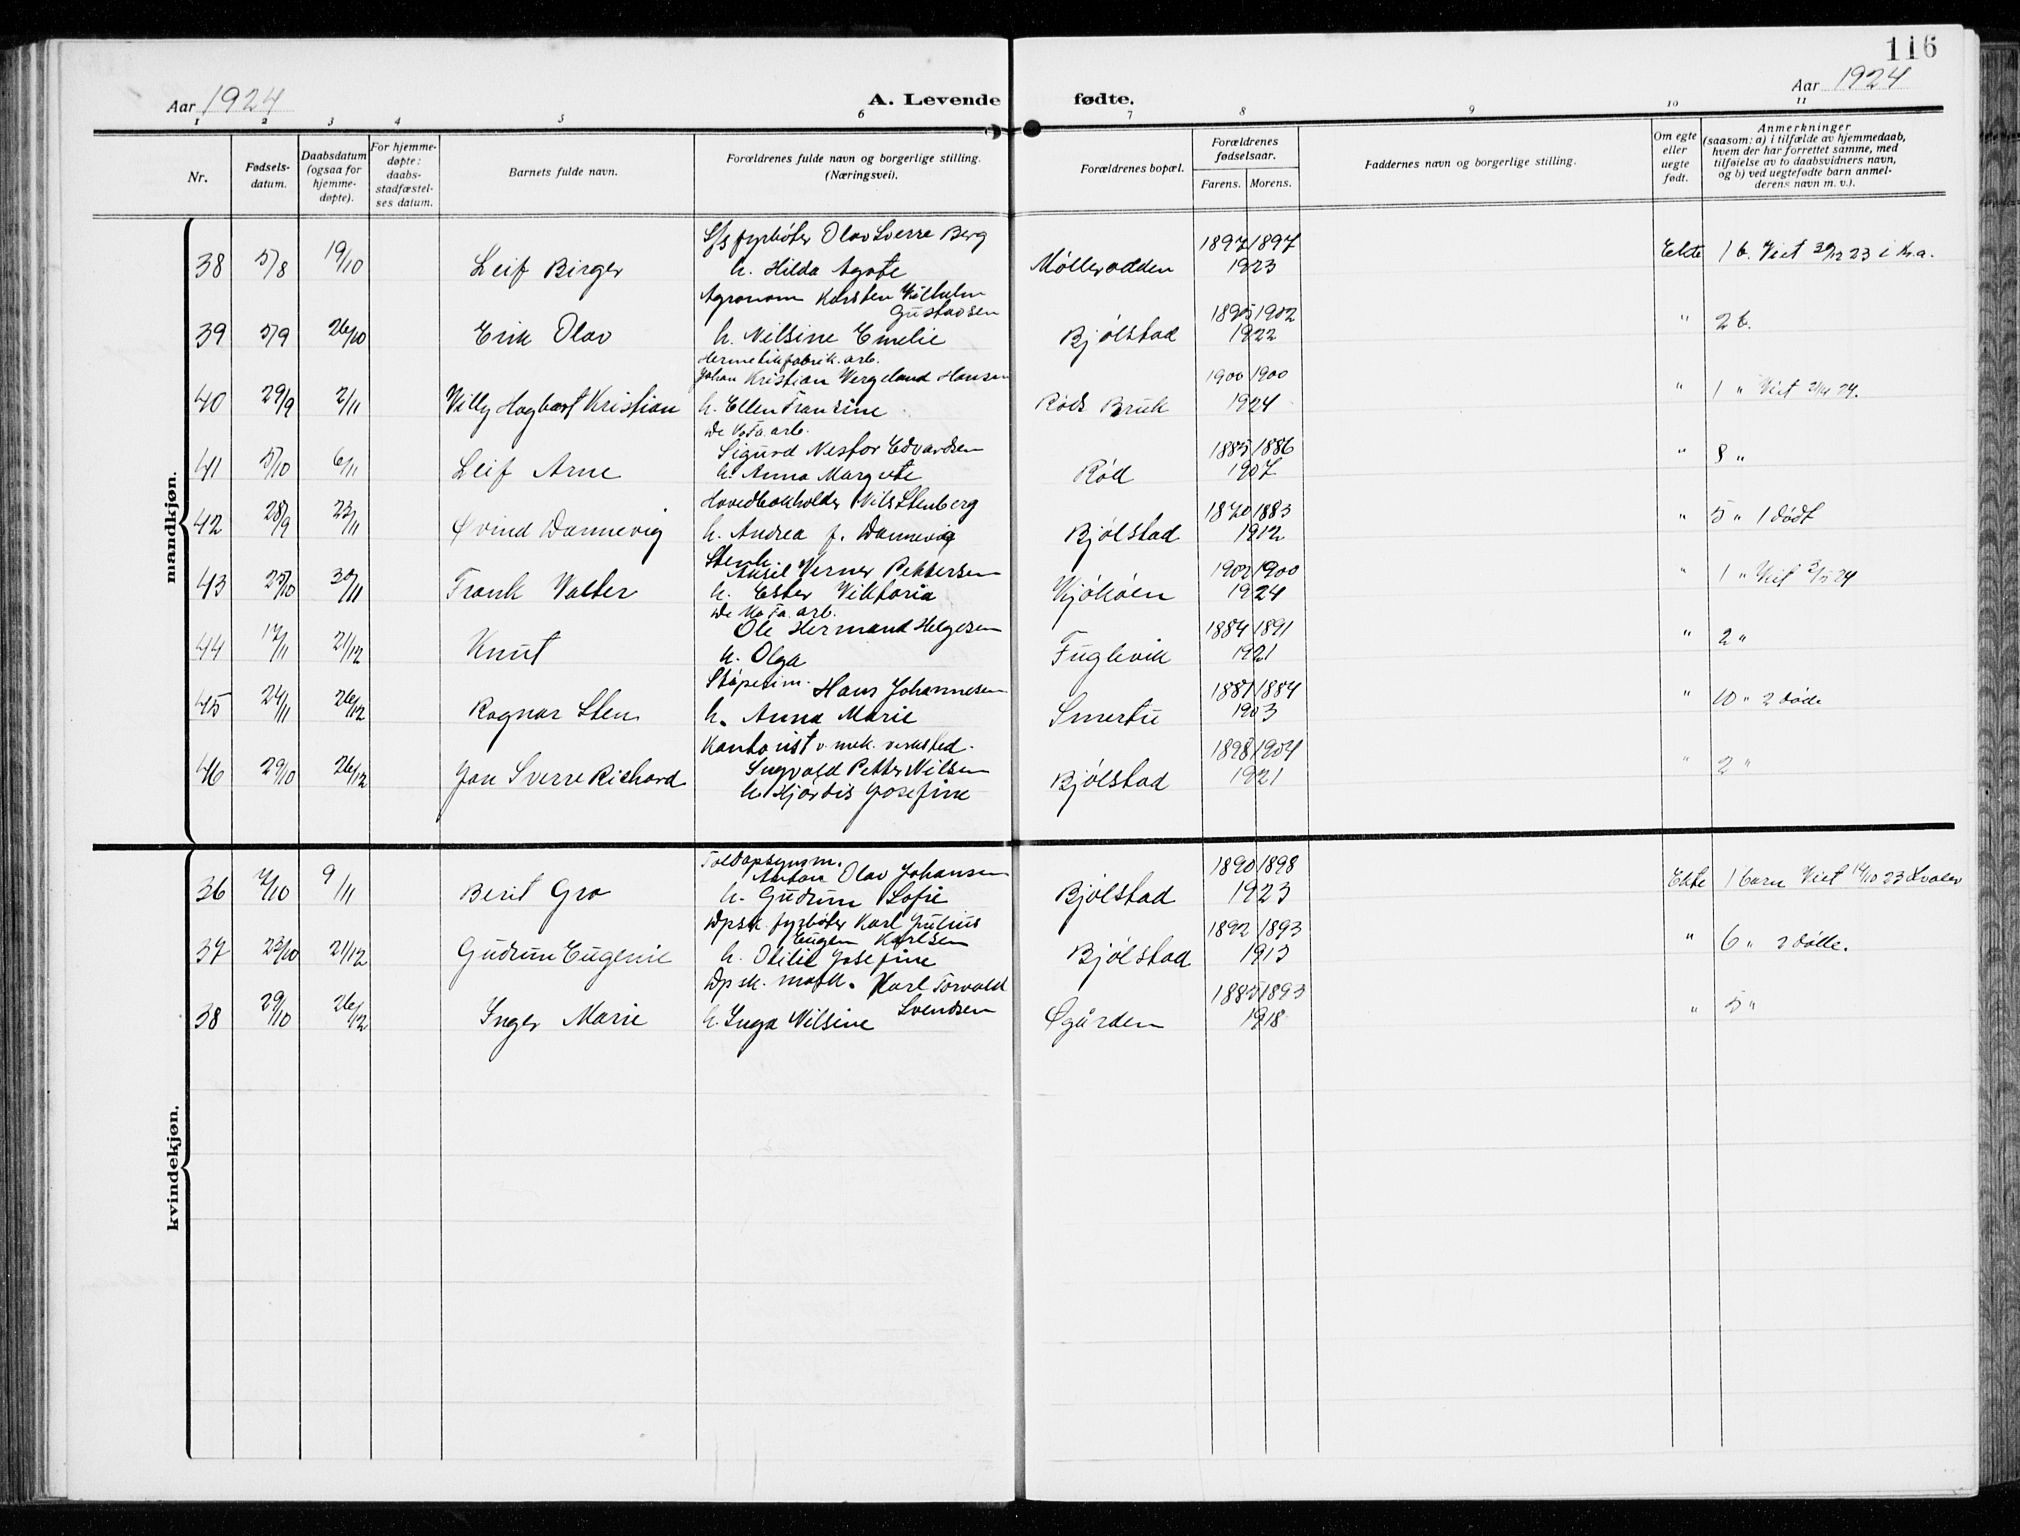 116
Aar 1924
A. Levende fødte.
Aar 1924
1 2 3 4 5 6 7 8 9 10 11
Nr.
Fødsels-
datum.
Daabsdatum
(ogsaa for
hjemme-
døpte).
For hjemme-
døpte:
daabs-
stadfæstel-
ses datum.
Barnets fulde navn.
Forældrenes fulde navn og borgerlige stilling.
(Næringsvei).
Forældrenes bopæl.
Forældrenes
fødselsaar.
Farens. Morens.
Faddernes navn og borgerlige stilling.
Om egte
eller
uegte
født.
Anmerkninger
(saasom: a) i tilfælde av hjemmedaab,
hvem der har forrettet samme, med
tilføielse av to daabsvidners navn,
og b) ved uegtefødte barn anmel-
derens navn m. v.).
mandkjøn.
S/s fyrbøter Olav Sverre Berg 1897 1897
38 5/8 19/10 Leif Birger h. Hilda Agate Møllerodden 1923 Ekte 1 b. Viet 30/12 23 i Kr.a.
Agronom Karsten Vilhelm
Gustavsen 1895 1902
39 5/9 26/10 Erik Olav h. Nilsine Emelie Bjølstad 1922 " 2 b.
Hermetikfabrik. arb.
Johan Kristian Vergeland Hansen 1900 1900
40 29/9 2/11 Villy Hagbart Kristian h. Ellen Fransine Røds Bruk 1924 " 1 " Viet 24.
De No Fa. arb.
Sigurd Nestor Edvardsen 1885 1886
41 5/10 6/11 Leif Arne h. Anna Margrete Rød 1907 " 8 "
Hovedbokholder Nils Stenberg 1870 1883
42 28/9 23/11 Øvind Dannevig h. Andrea f. Dannevig Bjølstad 1912 " 5 " 1 dødt
Stenh.
Aksil Verner Pettersen 1902 1900
43 25/10 30/11 Frank Valter h. Ester Viktoria Kjøkøen 1924 " 1 " Viet 3/5 24
De No Fa. arb.
Ole Hermand Helgesen 1884 1891
44 17/11 21/12 Knut h. Olga Fuglevik 1921 " 2 "
Støperim. Hans Johannesen 1881 1884
45 24/11 26/12 Ragnar Sten h. Anna Marie Smertu 1903 " 10 " 2 døde
Kontorist v. mek. verksted. 1898 1904
46 29/10 26/12 Jan Sverre Richard Ingvald Petter Nilsen Bjølstad 1921 " 2 "
h. Hjørdis Josefine
kvindekjøn.
Toldopsynsm.
Anton Olav Johansen 1890 1898
36 7/10 9/11 Berit Gro h. Gudrun Sofie Bjølstad 1923 Ekte 1 barn Viet 14/10 23 Hvaler
Dpsk. fyrbøter Karl Julius
Eugen Karlsen 1892 1893
37 23/10 21/12 Gudrun Eugenie h. Otilie Josefine Bjølstad 1913 " 6 " 2 døde.
Dpsk. mask. Karl Torvald 1885 1893
Svendsen
38 29/10 26/12 Inger Marie h. Inga Nilsine Øgården 1918 " 5 "